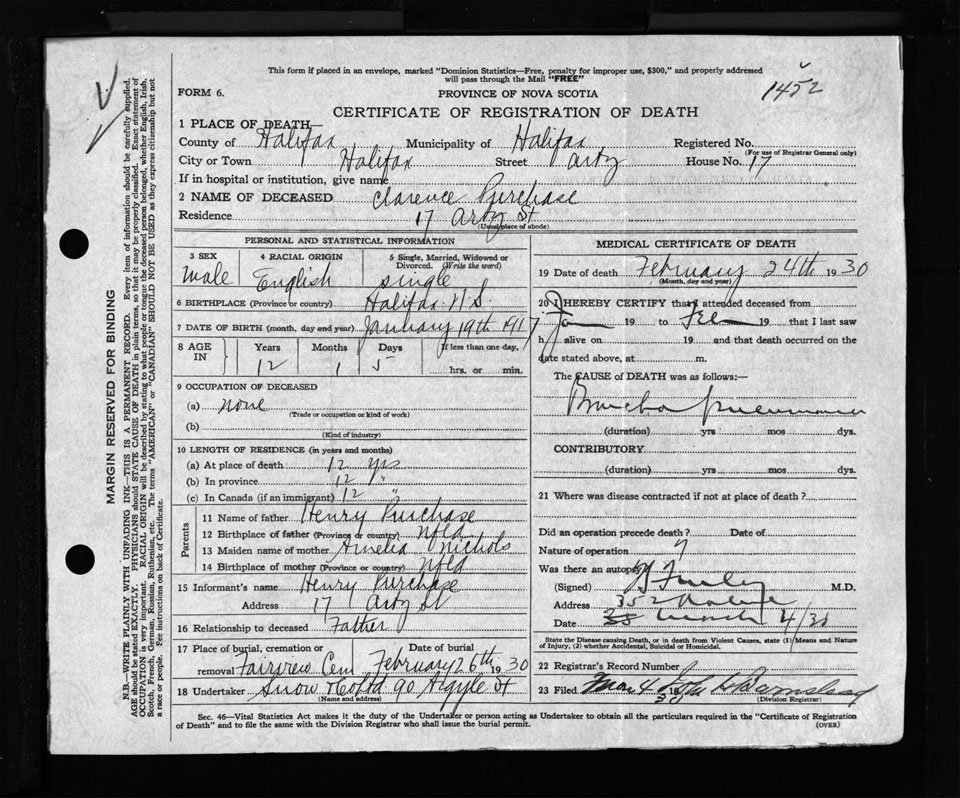 This form if placed in an envelope, marked "Dominion Statistics—Free, penalty for improper use, $300," and properly addressed
will pass through the Mail "FREE"
1452
FORM 6.
PROVINCE OF NOVA SCOTIA
CERTIFICATE OF REGISTRATION OF DEATH
1 PLACE OF DEATH—
County of Halifax Municipality of Halifax Registered No.
(For use of Registrar General only)
City or Town Halifax Street Artz House No. 17
If in hospital or institution, give name
2 NAME OF DECEASED Clarence Purchase
Residence 17 Artz St
(Usual place of abode)
PERSONAL AND STATISTICAL INFORMATION
3 SEX 4 RACIAL ORIGIN 5 Single, Married, Widowed or
Divorced. (Write the word)
male English single
6 BIRTHPLACE (Province or country) Halifax N.S.
7 DATE OF BIRTH (month, day and year) January 19th 1917
8 AGE IN Years Months Days If less than one day,
12 1 5 hrs. or min.
9 OCCUPATION OF DECEASED
(a) none
(Trade or occupation or kind of work)
(b)
(Kind of industry)
10 LENGTH OF RESIDENCE (in years and months)
(a) At place of death 12 yrs
(b) In province 12 "
(c) In Canada (if an immigrant) 12 "
Parents
11 Name of father Henry Purchase
12 Birthplace of father (Province or country) Nfld
13 Maiden name of mother Amelia Nichols
14 Birthplace of mother (Province or country) Nfld
15 Informant's name Henry Purchase
Address 17 Artz St
16 Relationship to deceased Father
17 Place of burial, cremation or Date of burial
removal Fairview Cem February 26th 1930
18 Undertaker Snow & Co Ltd 90 Argyle St
(Name and address)
MEDICAL CERTIFICATE OF DEATH
19 Date of death February 24th 1930
(Month, day and year)
20 I HEREBY CERTIFY that I attended deceased from
Jan 19 to Feb 19 that I last saw
h alive on 19 and that death occurred on the
date stated above, at m.
The CAUSE OF DEATH was as follows:—
Broncho pneumonia
(duration) yrs mos dys.
CONTRIBUTORY
(duration) yrs mos dys.
21 Where was disease contracted if not at place of death?
Did an operation precede death? Date of
Nature of operation
Was there an autopsy
(Signed) M.D.
Address 352
Date March 4/30
State the Disease causing Death, or in death from Violent Causes, state (1) Means and Nature
of Injury, (2) whether Accidental, Suicidal or Homicidal.
22 Registrar's Record Number
23 Filed Mar 4 30
(Division Registrar)
Sec. 46—Vital Statistics Act makes it the duty of the Undertaker or person acting as Undertaker to obtain all the particulars required in the "Certificate of Registration
of Death" and to file the same with the Division Registrar who shall issue the burial permit. (OVER)
MARGIN RESERVED FOR BINDING
N.B.—WRITE PLAINLY WITH UNFADING INK—THIS IS A PERMANENT RECORD. Every item of information should be carefully supplied.
AGE should be stated EXACTLY. PHYSICIANS should STATE CAUSE OF DEATH in plain terms, so that it may be properly classified. Exact statement of
OCCUPATION is very important. RACIAL ORIGIN will be described by stating to what people or tongue the deceased person belonged, whether English, Irish,
Scotch, French, German, Russian, Ruthenian, etc. The terms "AMERICAN" or "CANADIAN" SHOULD NOT BE USED as they express citizenship but not
a race or people. See instructions on back of Certificate.